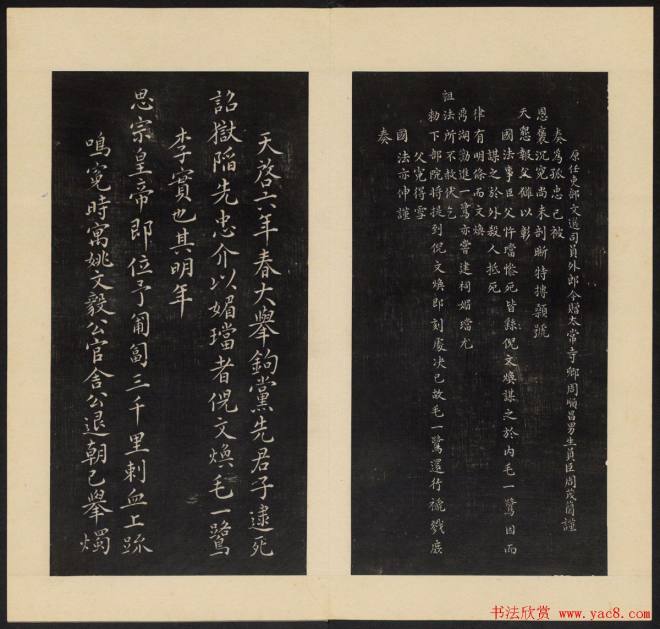 原任吏部文選司員外郎今贈太常寺卿周順昌男生員臣周茂蘭謹
奏為孤忠已被
恩褒沉冤尚未剖晰特摶顙號
天懇報父讎以彰
國法事臣父忤璫慘死皆繇倪文煥謀之於內毛一鷺因而
謀之於外殺人抵死
律有明條而文煥
一鷺亦嘗建祠媚璫尤
詛法所不赦伏乞
勅下部院將提到倪文煥即刻處决已故毛一鷺還行褫戮庶
父冤得雪
國法亦伸謹
奏
天啓六年春大舉鉤黨先君子逮死
詔獄陷先忠介以媚璫者倪文煥毛一鷺
李實也其明年
思宗皇帝即位予匍匐三千里刺血上疏
鳴冤時寓姚文毅公官舍公退朝已舉燭
书法欣赏 www.yac8.com